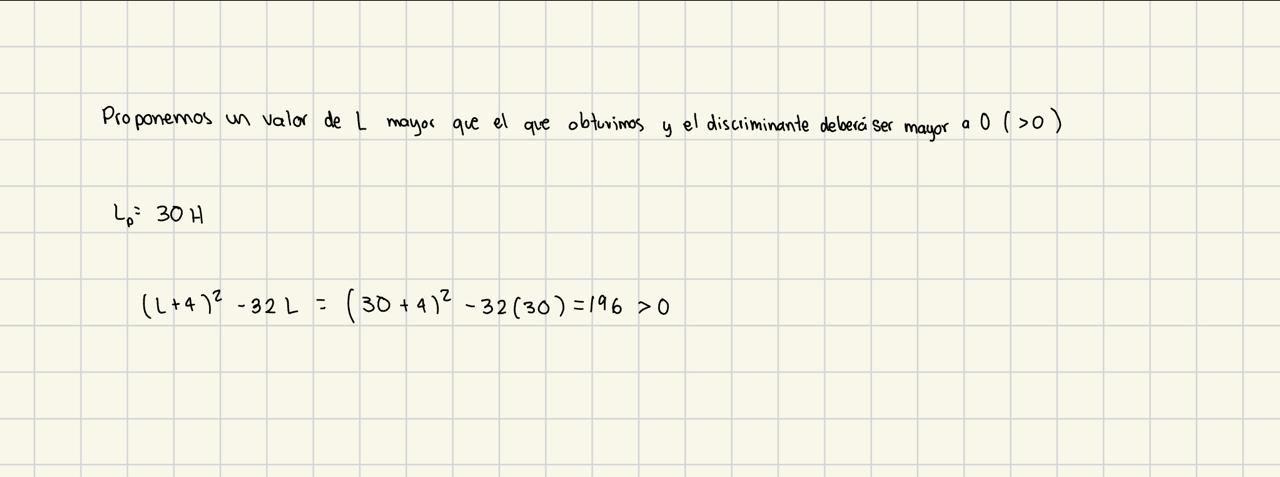 Proponemos un valor de L mayor que el que obtuvimos y el discriminante deberá ser mayor a 0 (>0)
Lp= 30 H
(L+4)² -32 L = (30 + 4)² -32(30) =196 >0